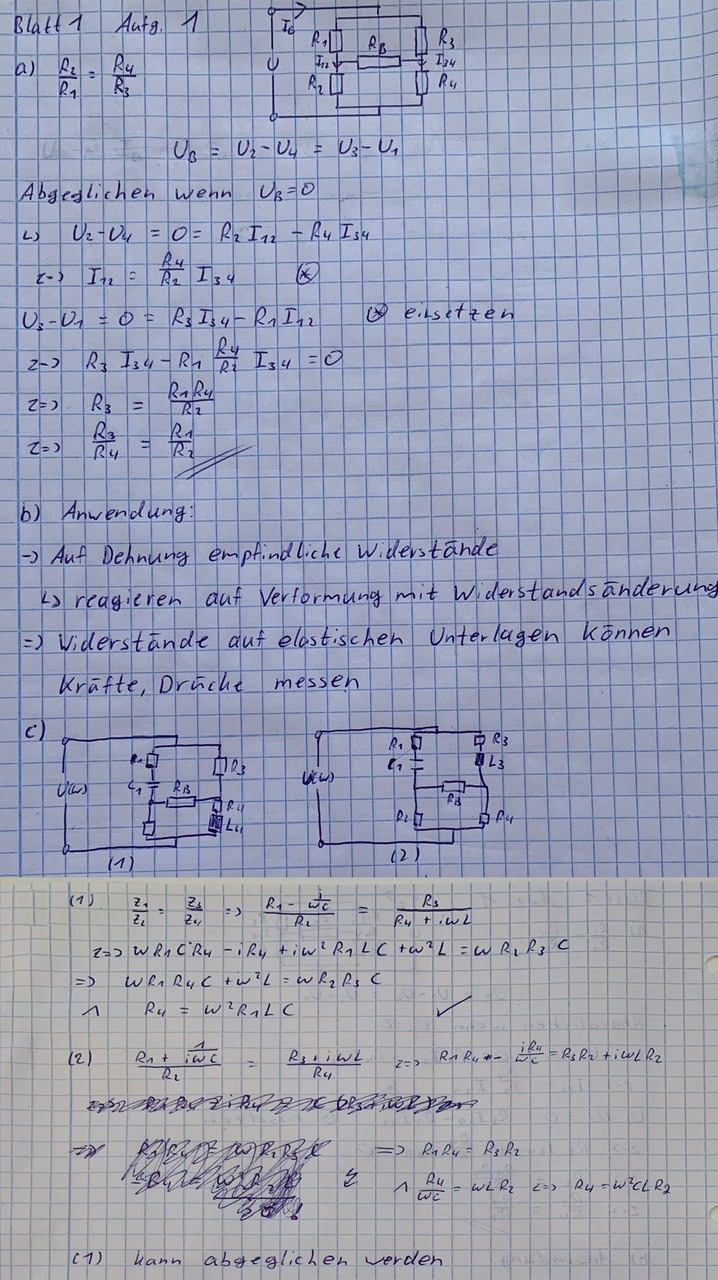 Blatt 1 Aufg. 1
I₀
R₁ R_B R₃
a) R₂/R₁ = R₄/R₃
U I₁₂ I₃₄
R₂ R₄
U_B = U₂ - U₄ = U₃ - U₁
Abgeglichen wenn U_B = 0
↳ U₂ - U₄ = 0 = R₂ I₁₂ - R₄ I₃₄
<=> I₁₂ = R₄/R₂ I₃₄ ⊛
U₃ - U₁ = 0 = R₃ I₃₄ - R₁ I₁₂ ⊛ einsetzen
<=> R₃ I₃₄ - R₁ R₄/R₂ I₃₄ = 0
<=> R₃ = R₁R₄/R₂
<=> R₃/R₄ = R₁/R₂
b) Anwendung:
-> Auf Dehnung empfindliche Widerstände
↳ reagieren auf Verformung mit Widerstandsänderung
=> Widerstände auf elastischen Unterlagen können
Kräfte, Drücke messen
c)
R₁ R₃
U(ω) C₁ R_B R₄
L₄
(1)
R₁ R₃
U(ω) C₁ L₃
R_B
R₂ R₄
(2)
(1) Z₁/Z₂ = Z₃/Z₄ => (R₁ - i/ωC)/R₂ = R₃/(R₄ + iωL)
<=> ωR₁CR₄ - iR₄ + iω²R₁LC + ω²L = ωR₂R₃C
=> ωR₁R₄C + ω²L = ωR₂R₃C
∧ R₄ = ω²R₁LC ✓
(2) (R₁ + 1/iωC)/R₂ = (R₃ + iωL)/R₄ <=> R₁R₄ - iR₄/ωC = R₃R₂ + iωLR₂
=> R₁R₄ = R₃R₂
↯ ∧ R₄/ωC = ωLR₂ <=> R₄ = ω²CLR₂
(1) kann abgeglichen werden